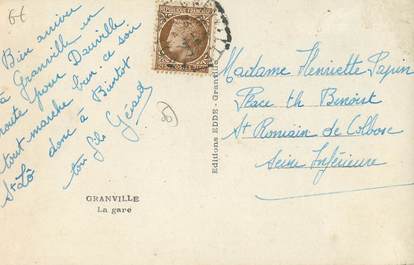 6€
Bien arriver
à Granville en
route pour Deauville
tout marche bien ce soir
St Lô donc à Bientot
ton fils Gérard
GRANVILLE
La gare
Editions EDDE - Granville
Madame Henriette Papin
Place th Benoist
St Romain de Colbosc
Seine Inférieure